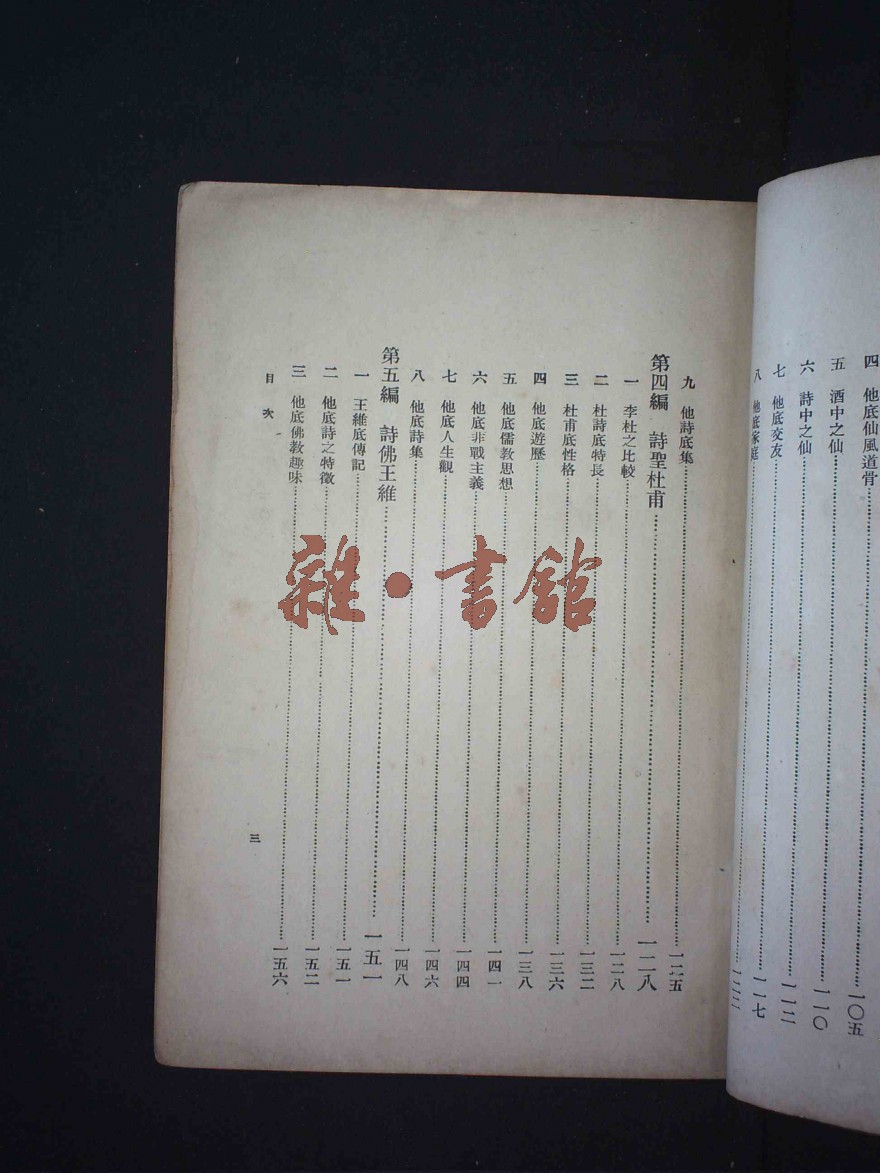 四　他底仙風道骨……一〇五
五　酒中之仙……一一〇
六　詩中之仙……一一二
七　他底交友……一一七
八　他底家庭……一二三
九　他詩底集……一二五
第四編　詩聖杜甫……一二八
一　李杜之比較……一二八
二　杜詩底特長……一三二
三　杜甫底性格……一三六
四　他底遊歷……一三八
五　他底儒教思想……一四一
六　他底非戰主義……一四四
七　他底人生觀……一四六
八　他底詩集……一四八
第五編　詩佛王維……一五一
一　王維底傳記……一五一
二　他底詩之特徵……一五二
三　他底佛教趣味……一五六
目次
三
雜·書舘